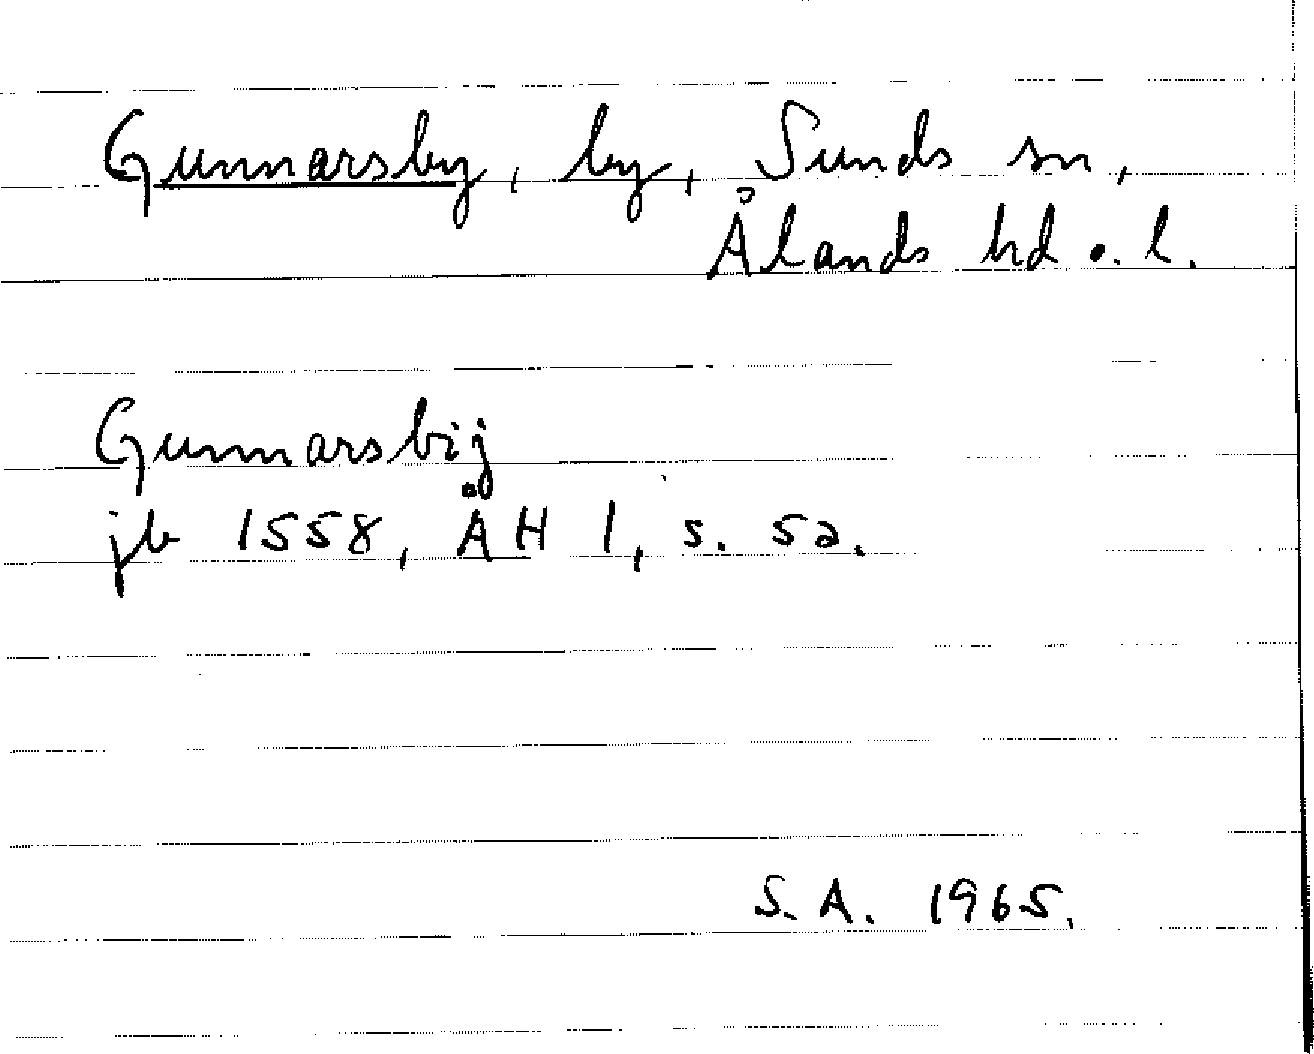 Gunnarsby, by, Sunds sn,
Ålands hd o. l.
Gunnarsbij
jb 1558, ÅH 1, s. 52.
S. A. 1965.